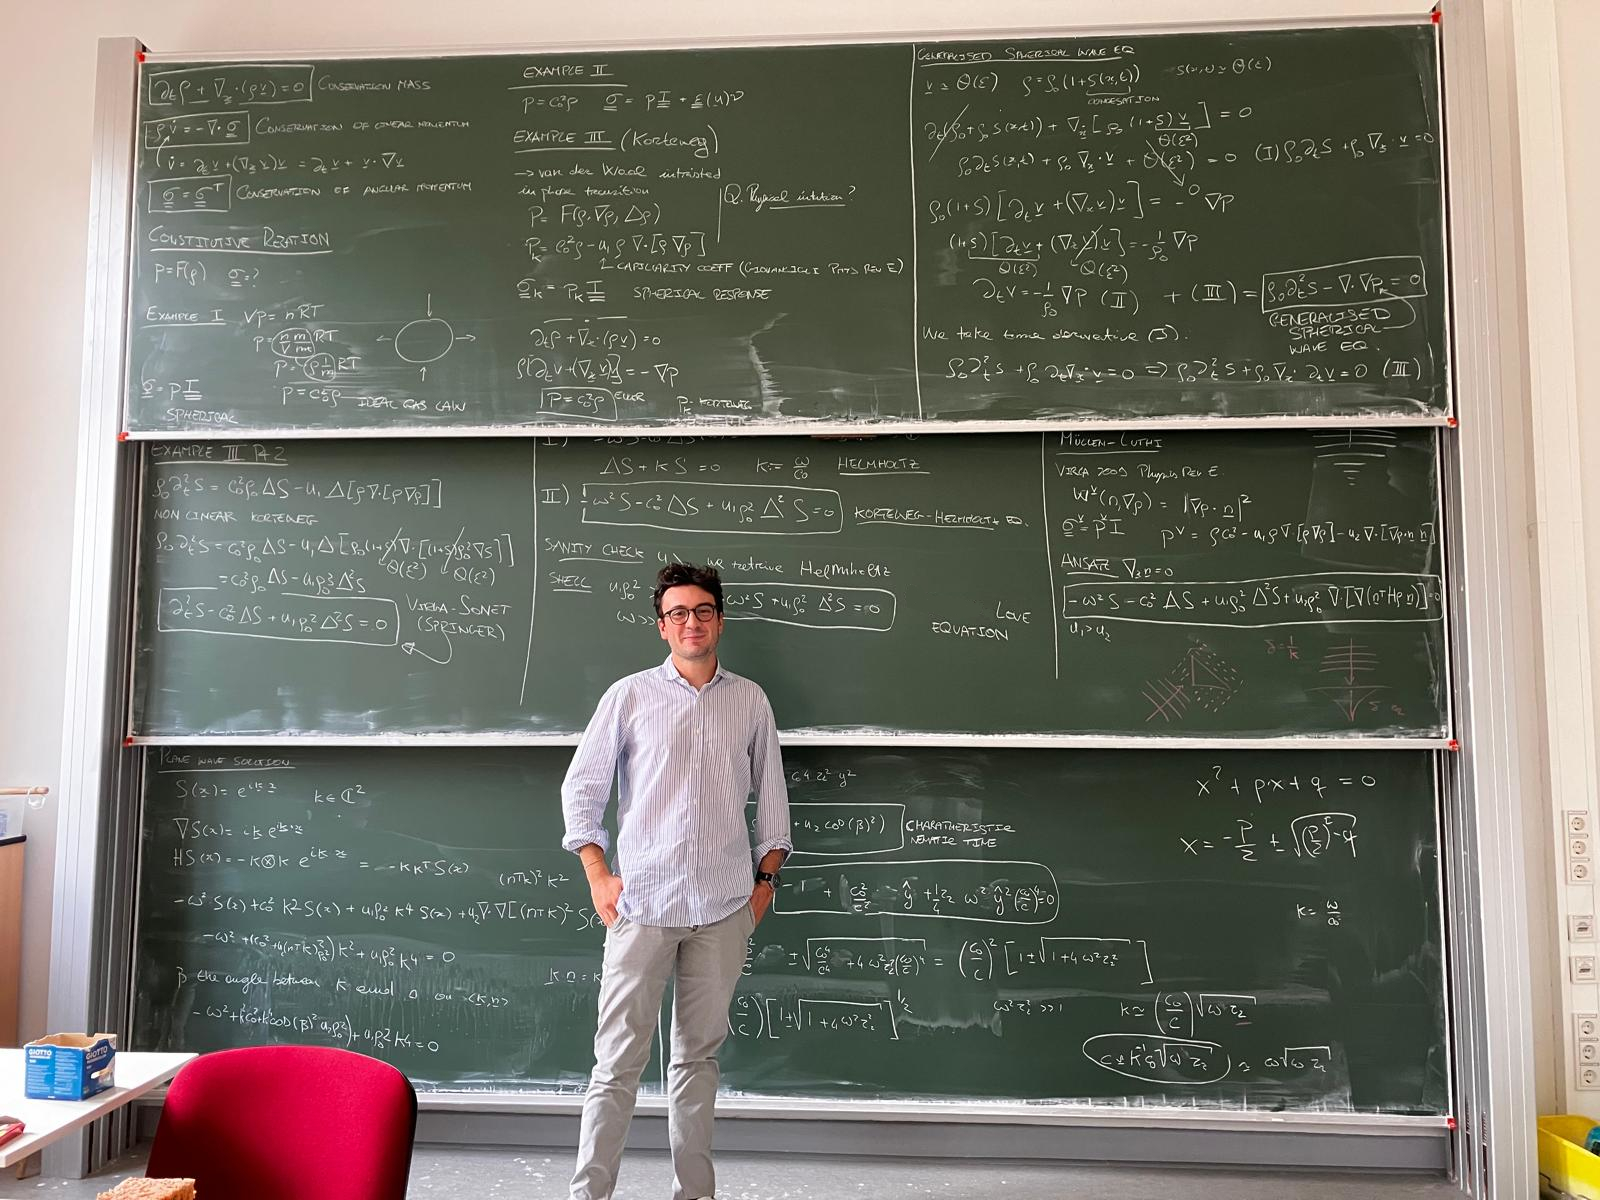 ∂tρ + ∇x·(ρv) = 0 CONSERVATION MASS
ρv̇ = -∇·σ CONSERVATION OF LINEAR MOMENTUM
v̇ = ∂tv + (∇xv)v = ∂tv + v·∇v
σ = σᵀ CONSERVATION OF ANGULAR MOMENTUM
CONSTITUTIVE RELATION
P = F(ρ) σ = ?
EXAMPLE I VP = nRT
σ = pI
SPHERICAL
P = c₀²ρ IDEAL GAS LAW
EXAMPLE II
P = c₀²ρ σ = pI + ε(u)ν
EXAMPLE III (Korteweg)
→ van der Waal intrested
in phase transition
Q. Physical intuition?
P = F(ρ,∇ρ,Δρ)
Pk = c₀²ρ - u₁ρ∇·[ρ∇ρ]
CAPILLARITY COEFF (GIOVANGIGLI PHYS REV E)
σk = PkI SPHERICAL RESPONSE
∂tρ + ∇x·(ρv) = 0
ρ[∂tv + (∇xv)v] = -∇p
P = c₀²ρ EULER Pk KORTEWEG
GENERALISED SPHERICAL WAVE EQ
v ≃ Θ(ε) ρ = ρ₀(1+S(x,t)) S(x,t) ≃ Θ(ε)
CONDESATION
∂t(ρ₀+ρ₀S(x,t)) + ∇x·[ρ₀(1+S)v] = 0
Θ(ε²)
ρ₀∂tS(x,t) + ρ₀∇x·v + Θ(ε²) = 0 (I) ρ₀∂tS + ρ₀∇x·v = 0
ρ₀(1+S)[∂tv + (∇xv)v] = -∇p
(1+S)[∂tv + (∇xv)v] = -1/ρ₀ ∇p
Θ(ε²) Θ(ε²)
∂tv = -1/ρ₀ ∇p (II) + (III) = ρ₀∂t²S - ∇·∇pk = 0
GENERALISED
SPHERICAL
WAVE EQ.
We take time derivative (I).
ρ₀∂t²S + ρ₀∂t∇x·v = 0 ⇒ ρ₀∂t²S + ρ₀∇x·∂tv = 0 (III)
EXAMPLE III Pt 2
ρ₀∂t²S = c₀²ρ₀ΔS - u₁Δ[ρ∇·[ρ∇ρ]]
NON LINEAR KORTEWEG
ρ₀∂t²S = c₀²ρ₀ΔS - u₁Δ[ρ₀(1+S)∇·[(1+S)ρ₀²∇S]]
Θ(ε²) Θ(ε²)
= c₀²ρ₀ΔS - u₁ρ₀³Δ²S
∂t²S - c₀²ΔS + u₁ρ₀²Δ²S = 0
VIRGA-SONET
(SPRINGER)
I)
ΔS + kS = 0 k := ω/c₀ HELMHOLTZ
II) -ω²S - c₀²ΔS + u₁ρ₀²Δ²S = 0 KORTEWEG-HELMHOLTZ EQ.
SANITY CHECK we retreive Helmholtz
SHELL u₁ρ₀² ω²S + u₁ρ₀²Δ²S = 0
ω >>
LOVE
EQUATION
MÜLLEN-LUTHI
VIRGA 2009 Physics Rev E.
Wᵛ(n,∇ρ) = |∇ρ·n|²
σᵛ = pᵛI pᵛ = ρc₀² - u₁ρ∇·[ρ∇ρ] - u₂∇·[∇ρ·n n]
ANSATZ ∇xn = 0
-ω²S - c₀²ΔS + u₁ρ₀²Δ²S + u₂ρ₀∇·[∇(nᵀHρn)] = 0
u₁ > u₂
δ = 1/k
PLANE WAVE SOLUTION
S(x) = e^{ik·x} k ∈ ℂ²
∇S(x) = ik e^{ik·x}
HS(x) = -k⊗k e^{ik·x} = -kkᵀS(x)
(nᵀk)²k²
-ω²S(x) + c₀²k²S(x) + u₁ρ₀²k⁴S(x) + u₂∇·∇[(nᵀk)²S(x
-ω² + (c₀² + u₂(nᵀk)²ρ₀²)k² + u₁ρ₀²k⁴ = 0
β the angle between k and n on <k,n> k·n = k
+ u₂ cos(β)²) CHARATHERISTIC
NEMATIC TIME
= (c₀/c)²[1±√(1+4ω²τ₂²)]
(c₀/c)[1±√(1+4ω²τ₂²)]^{1/2}
ω²τ₂² >> 1 k ≃ (c₀/c)√(ωτ₂)
x² + px + q = 0
x = -p/2 ± √((p/2)²-q)
GIOTTO
GIOTTO